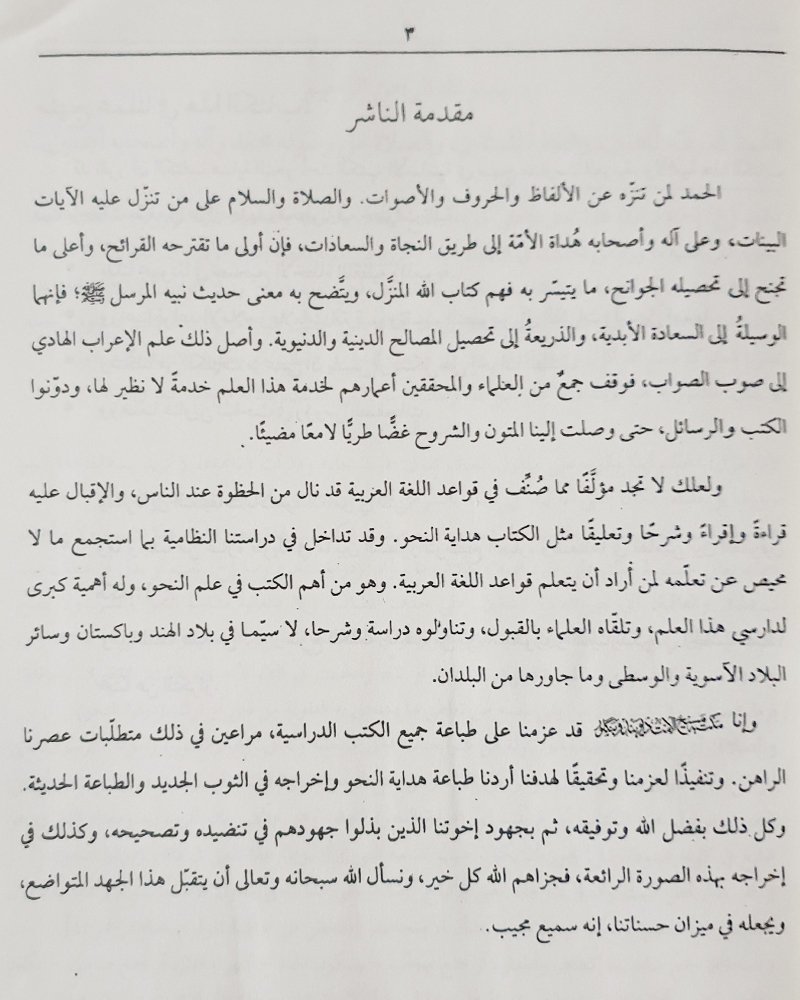 ٣
مقدمة الناشر
الحمد لمن تنزّه عن الألفاظ والحروف والأصوات. والصلاة والسلام على من تنزّل عليه الآيات
البينات، وعلى آله وأصحابه هُداة الأمّة إلى طريق النجاة والسعادات، فإن أولى ما تقترحه القرائح، وأعلى ما
تجنح إلى تحصيله الجوانح، ما يتيسّر به فهم كتاب الله المنزَّل، ويتَّضح به معنى حديث نبيه المرسل ﷺ؛ فإنهما
الوسيلةُ إلى السعادة الأبدية، والذريعةُ إلى تحصيل المصالح الدينية والدنيوية. وأصل ذلك علم الإعراب الهادي
إلى صوب الصواب، فوقف جمعٌ من العلماء والمحققين أعمارهم لخدمة هذا العلم خدمةً لا نظير لها، ودوّنوا
الكتب والرسائل، حتى وصلت إلينا المتون والشروح غضًّا طريًّا لامعًا مضيئًا.
ولعلك لا تجد مؤلَّفًا مما صُنِّف في قواعد اللغة العربية قد نال من الحظوة عند الناس، والإقبال عليه
قراءةً وإقراءً وشرحًا وتعليقًا مثل الكتاب هداية النحو. وقد تداخل في دراستنا النظامية بما استجمع ما لا
محيص عن تعلّمه لمن أراد أن يتعلم قواعد اللغة العربية. وهو من أهم الكتب في علم النحو، وله أهمية كبرى
لدارسي هذا العلم، وتلقّاه العلماء بالقبول، وتناولوه دراسة وشرحا، لا سيّما في بلاد الهند وباكستان وسائر
البلاد الآسوية والوسطى وما جاورها من البلدان.
وإنا قد عزمنا على طباعة جميع الكتب الدراسية، مراعين في ذلك متطلّبات عصرنا
الراهن. وتنفيذًا لعزمنا وتحقيقًا لهدفنا أردنا طباعة هداية النحو وإخراجه في الثوب الجديد والطباعة الحديثة.
وكل ذلك بفضل الله وتوفيقه، ثم بجهود إخوتنا الذين بذلوا جهودهم في تنضيده وتصحيحه، وكذلك في
إخراجه بهذه الصورة الرائعة، فجزاهم الله كل خير، ونسأل الله سبحانه وتعالى أن يتقبّل هذا الجهد المتواضع،
ويجعله في ميزان حسناتنا، إنه سميع مجيب.